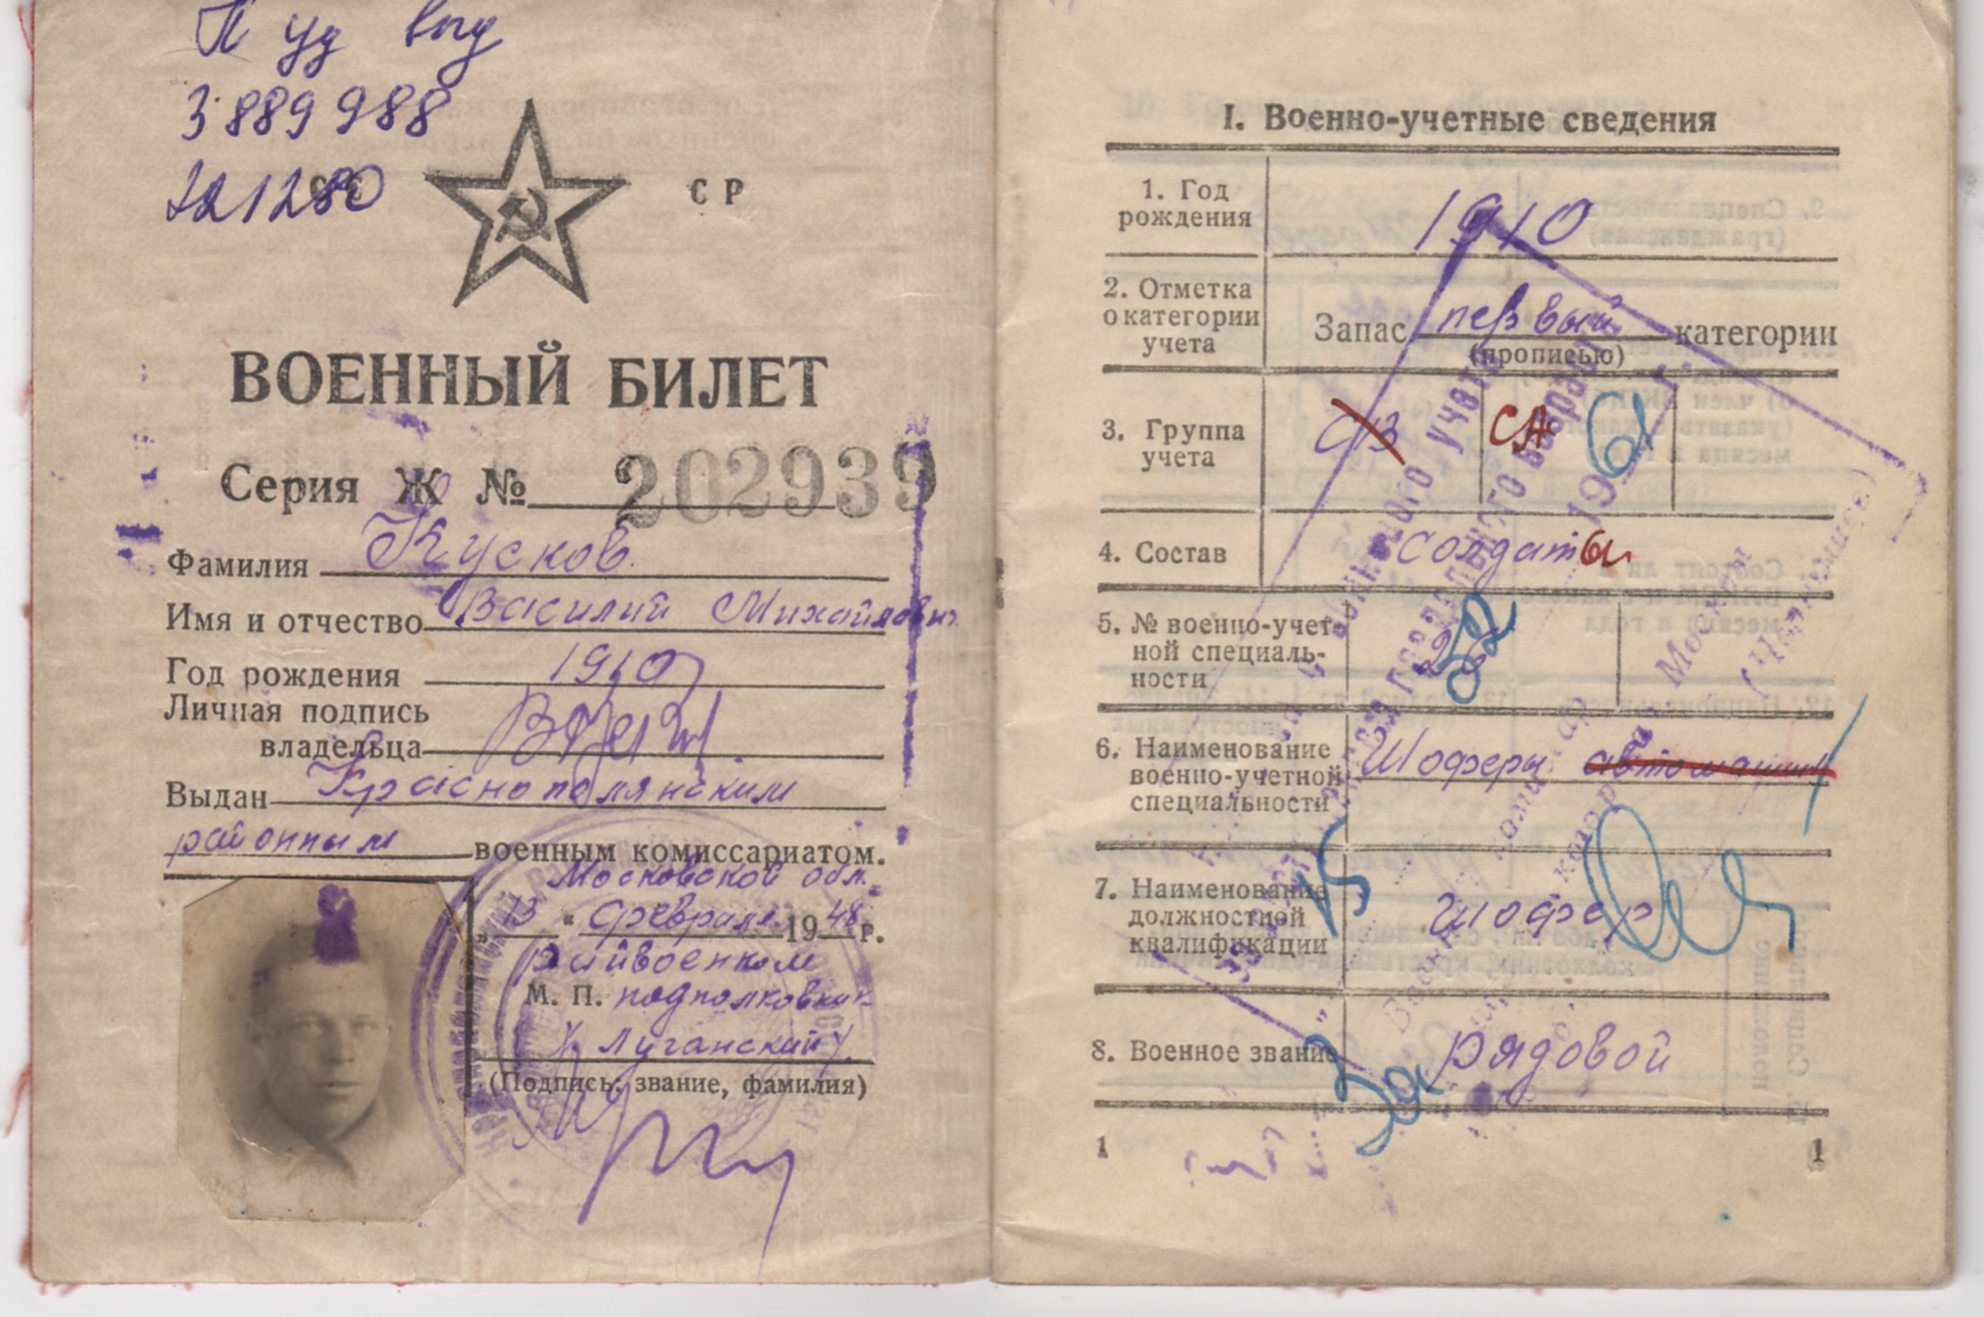 П уд выд
3889988
221280
СС СР
ВОЕННЫЙ БИЛЕТ
Серия Ж № 202939
Фамилия Кусков
Имя и отчество Василий Михайлович
Год рождения 1910
Личная подпись
владельца
Выдан Краснополянским
районным военным комиссариатом.
Московской обл.
„ 13 “ февраля 1948 г.
Райвоенком
М. П. подполковник
/Луганский/
(Подпись, звание, фамилия)
I. Военно-учетные сведения
1. Год
рождения 1910
2. Отметка
о категории
учета Запас первый категории
(прописью)
3. Группа
учета СА
4. Состав Солдаты
5. № военно-учет-
ной специаль-
ности
6. Наименование
военно-учетной
специальности Шоферы автомашин
7. Наименование
должностной
квалификации шофер
8. Военное звание рядовой
1 1
воинского учета
предельного возраста
196 г.
Москвы